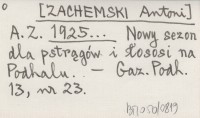 [ZACHEMSKI Antoni]
A.Z. 1925... Nowy sezon
dla pstrągów i łososi na
Podhalu.. — Gaz. Podh.
13, nr 23.